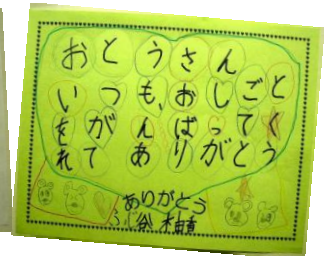 おとうさん
いつも、おしごと
をがんばってく
れてありがとう
ありがとう